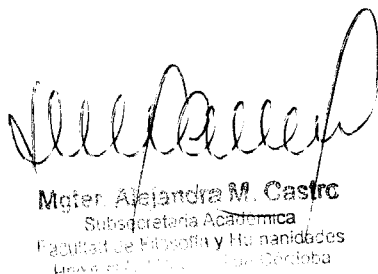 Mgter. Alejandra M. Castro
Subsecretaria Académica
Facultad de Filosofía y Humanidades
Córdoba